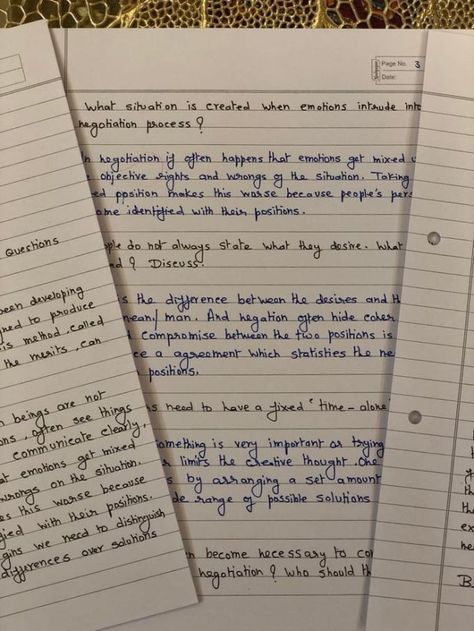 Page No. 3
Date:
What situation is created when emotions intrude into
negotiation process ?
negotiation if often happens that emotions get mixed
objective rights and wrongs of the situation. Taking
ed pposition makes this worse because people's pers
ome identified with their positions.
ple do not always state what they desire. What
d ? Discuss.
s the difference between the desires and
mean/man. And negation often hide
compromise between the two positions is
ce a agreement which statisties the ne
positions.
s need to have a fixed "time - alone"
omething is very important or trying
limits the creative thought. One
s by arranging a set amount
de range of possible solutions
n become necessary to co
negotiation ? Who should th
Questions
een developing
ned to produce
is method, called
the merits, can
n beings are not
ons, often see things
communicate clearly,
at emotions get mixed
wrongs on the situation.
es this worse because
fied with their positions.
gins we need to distinguish
differences over solutions
th
the
ex
he
B